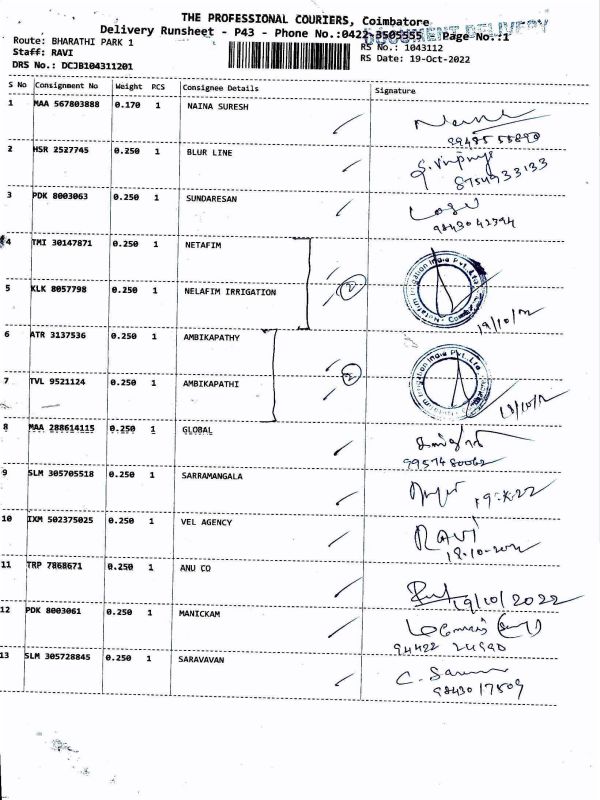 THE PROFESSIONAL COURIERS, Coimbatore
Delivery Runsheet - P43 - Phone No.:0422-3505555 Page No.:1
DOCUMENT DELIVERY
Route: BHARATHI PARK 1 RS No.: 1043112
Staff: RAVI RS Date: 19-Oct-2022
DRS No.: DCJB104311201
S No Consignment No Weight PCS Consignee Details Signature
1 MAA 567803888 0.170 1 NAINA SURESH
2 HSR 2527745 0.250 1 BLUR LINE
8754933133
3 PDK 8003063 0.250 1 SUNDARESAN
9843042394
4 TMI 30147871 0.250 1 NETAFIM
Netafim Irrigation India Pvt. Ltd.
5 KLK 8057798 0.250 1 NELAFIM IRRIGATION 2
19/10/22
6 ATR 3137536 0.250 1 AMBIKAPATHY
Irrigation India Pvt. Ltd.
7 TVL 9521124 0.250 1 AMBIKAPATHI 2
8 MAA 288614115 0.250 1 GLOBAL
9957480062
9 SLM 305705518 0.250 1 SARRAMANGALA
19-X-22
10 IXM 502375025 0.250 1 VEL AGENCY
RAVI
11 TRP 7868671 0.250 1 ANU CO
19/10/2022
12 PDK 8003061 0.250 1 MANICKAM
94422 24990
13 SLM 305728845 0.250 1 SARAVAVAN
9843017509